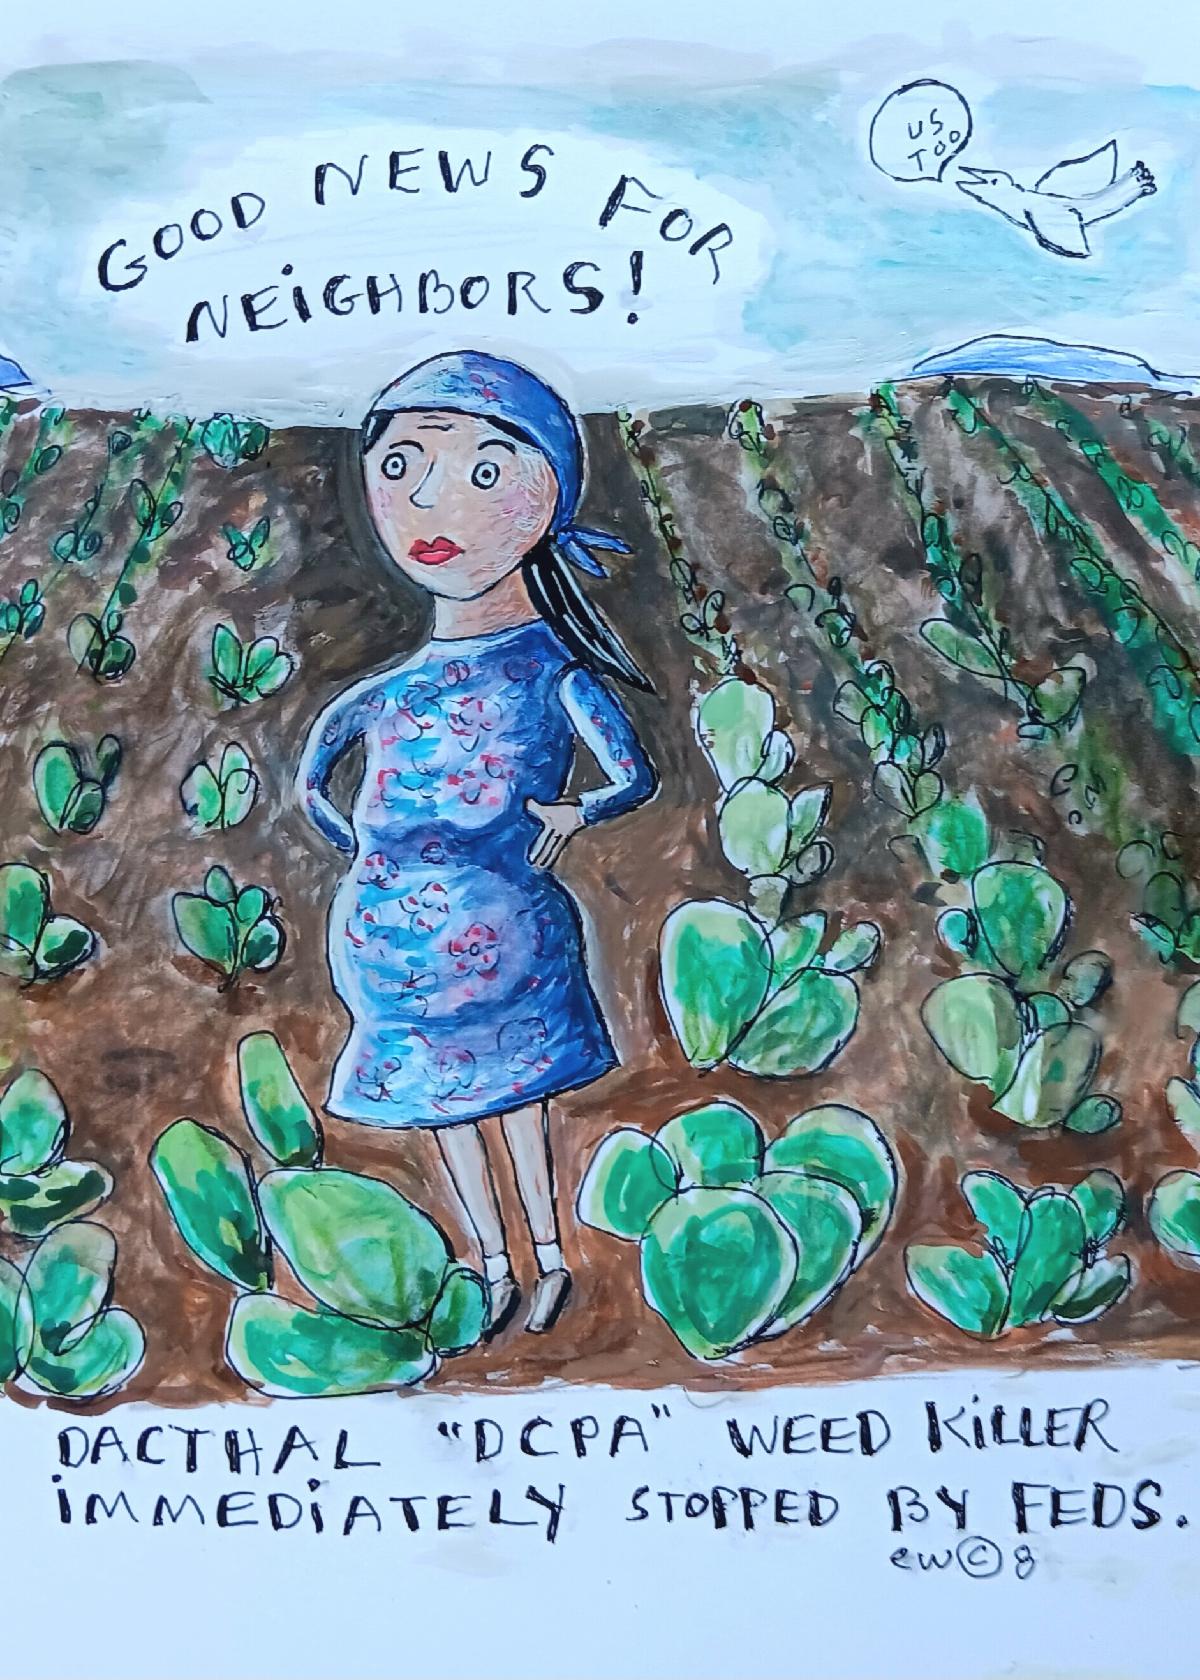 GOOD NEWS FOR
NEIGHBORS!
US
TOO
DACTHAL "DCPA" WEED KILLER
IMMEDIATELY STOPPED BY FEDS.
ew©8